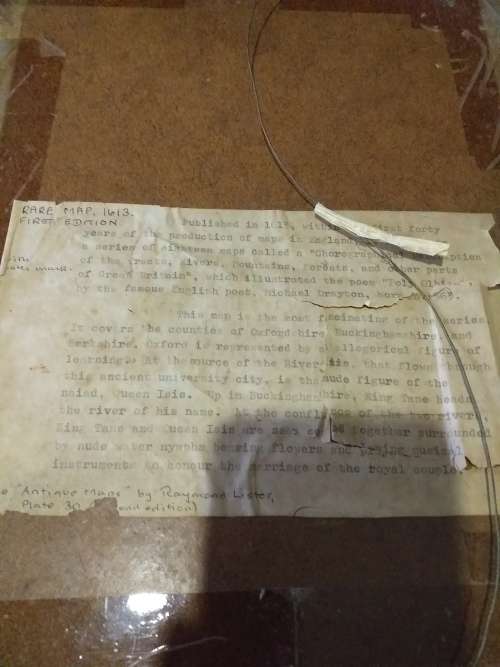 RARE MAP, 1613.
FIRST EDITION.
Published in 161 , within first forty
years of the production of maps in England,
a series of eighteen maps called a "Chorographical ption
of the Tracts, Rivers, Mountains, Forests, and other parts
of Great Britain", which illustrated the poem "Poly Olbion",
by the famous English poet, Michael Drayton, born
This map is the most fascinating of the series.
It covers the counties of Oxfordshire, Buckinghamshire, and
Berkshire. Oxford is represented by allegorical figure of
learning. At the source of the River that flows through
this ancient university city, is the nude figure of the
naiad, Queen Isis. Up in Buckinghamshire, King Tame heads
the river of his name. At the confl nce of the two rivers,
King Tame and Queen Isis are seen together surrounded
by nude water nymphs bearing flowers and musical
instruments to honour the marriage of the royal couple.
"Antique Maps" by Raymond Lister,
Plate 30 edition)